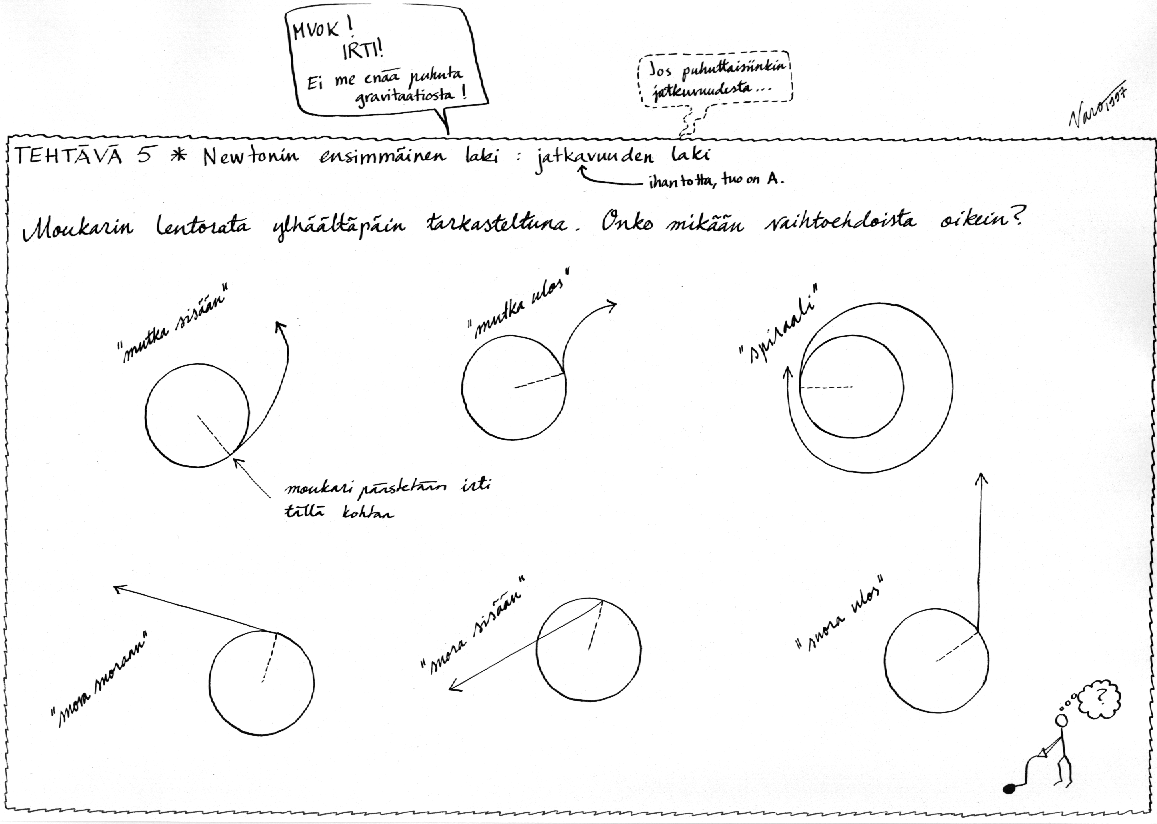 MVOK!
IRTI!
Ei me enää puhuta
gravitaatiosta!
Jos puhuttaisiinkin
jatkuvuudesta...
Varo 1997
TEHTÄVÄ 5 * Newtonin ensimmäinen laki : jatkavuuden laki
ihan totta, tuo on A.
Moukarin lentorata ylhäältäpäin tarkasteltuna. Onko mikään vaihtoehdoista oikein?
"mutka sisään"
"mutka ulos"
"spiraali"
moukari päästetään irti
tällä kohtaa
"suora suoraan"
"suora sisään"
"suora ulos"
?